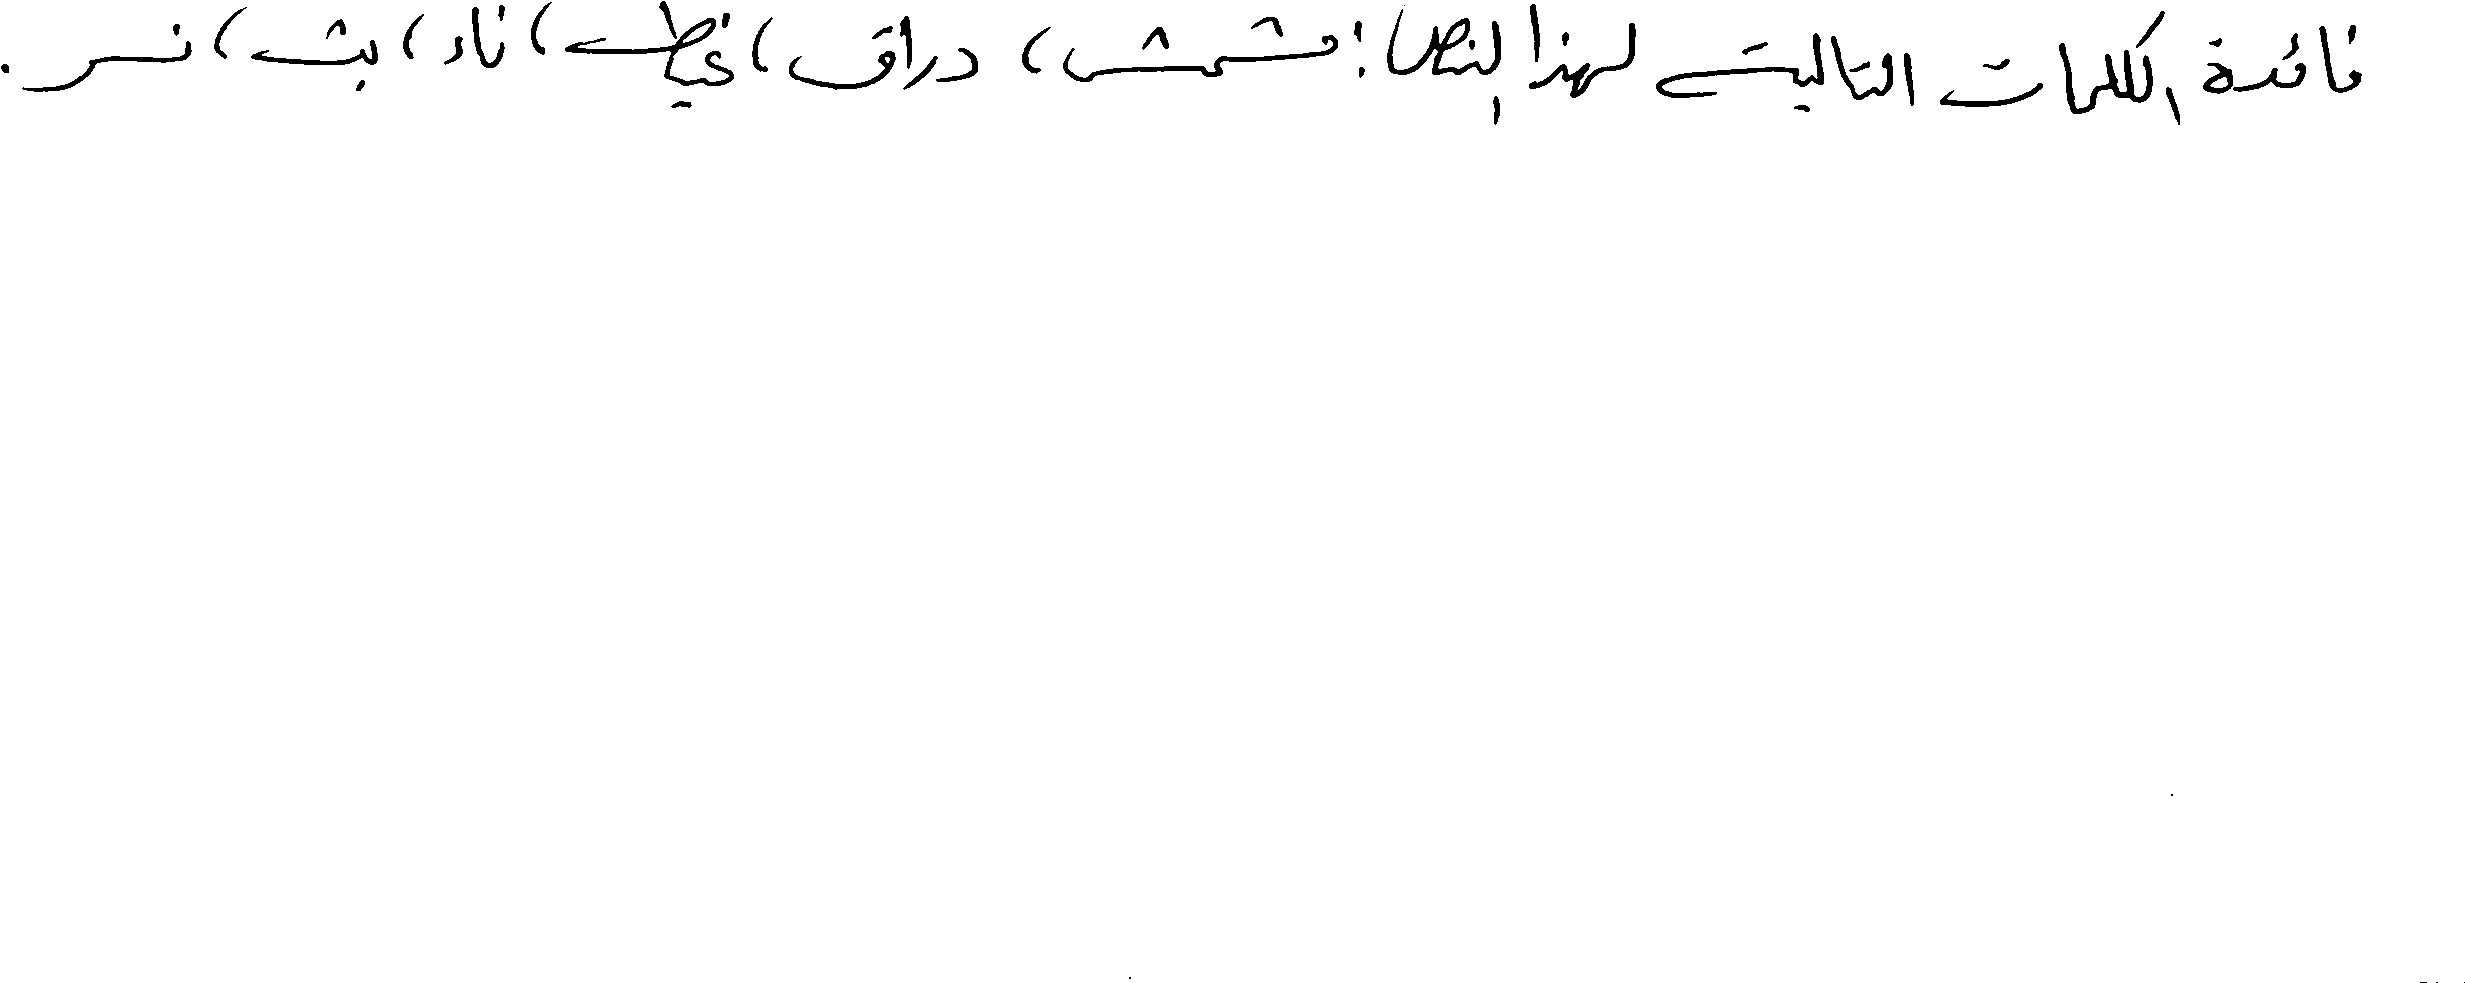 فائدة الكلمات التالية لهذا النص: مشمش، دراق، غيظ، ناء، بث، نسر.